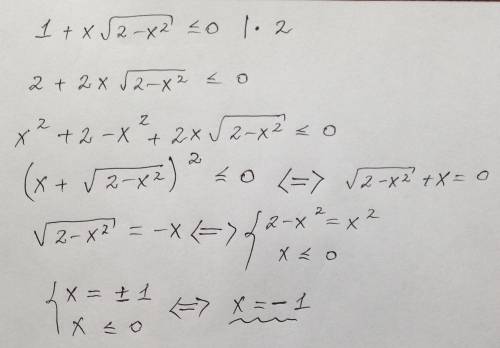 1 + x√(2-x²) ≤ 0 | · 2
2 + 2x √(2-x²) ≤ 0
x² + 2 - x² + 2x √(2-x²) ≤ 0
(x + √(2-x²))² ≤ 0 <=> √(2-x²) + x = 0
√(2-x²) = -x <=> { 2-x² = x²
x ≤ 0
{ x = ±1
x ≤ 0 <=> x = -1